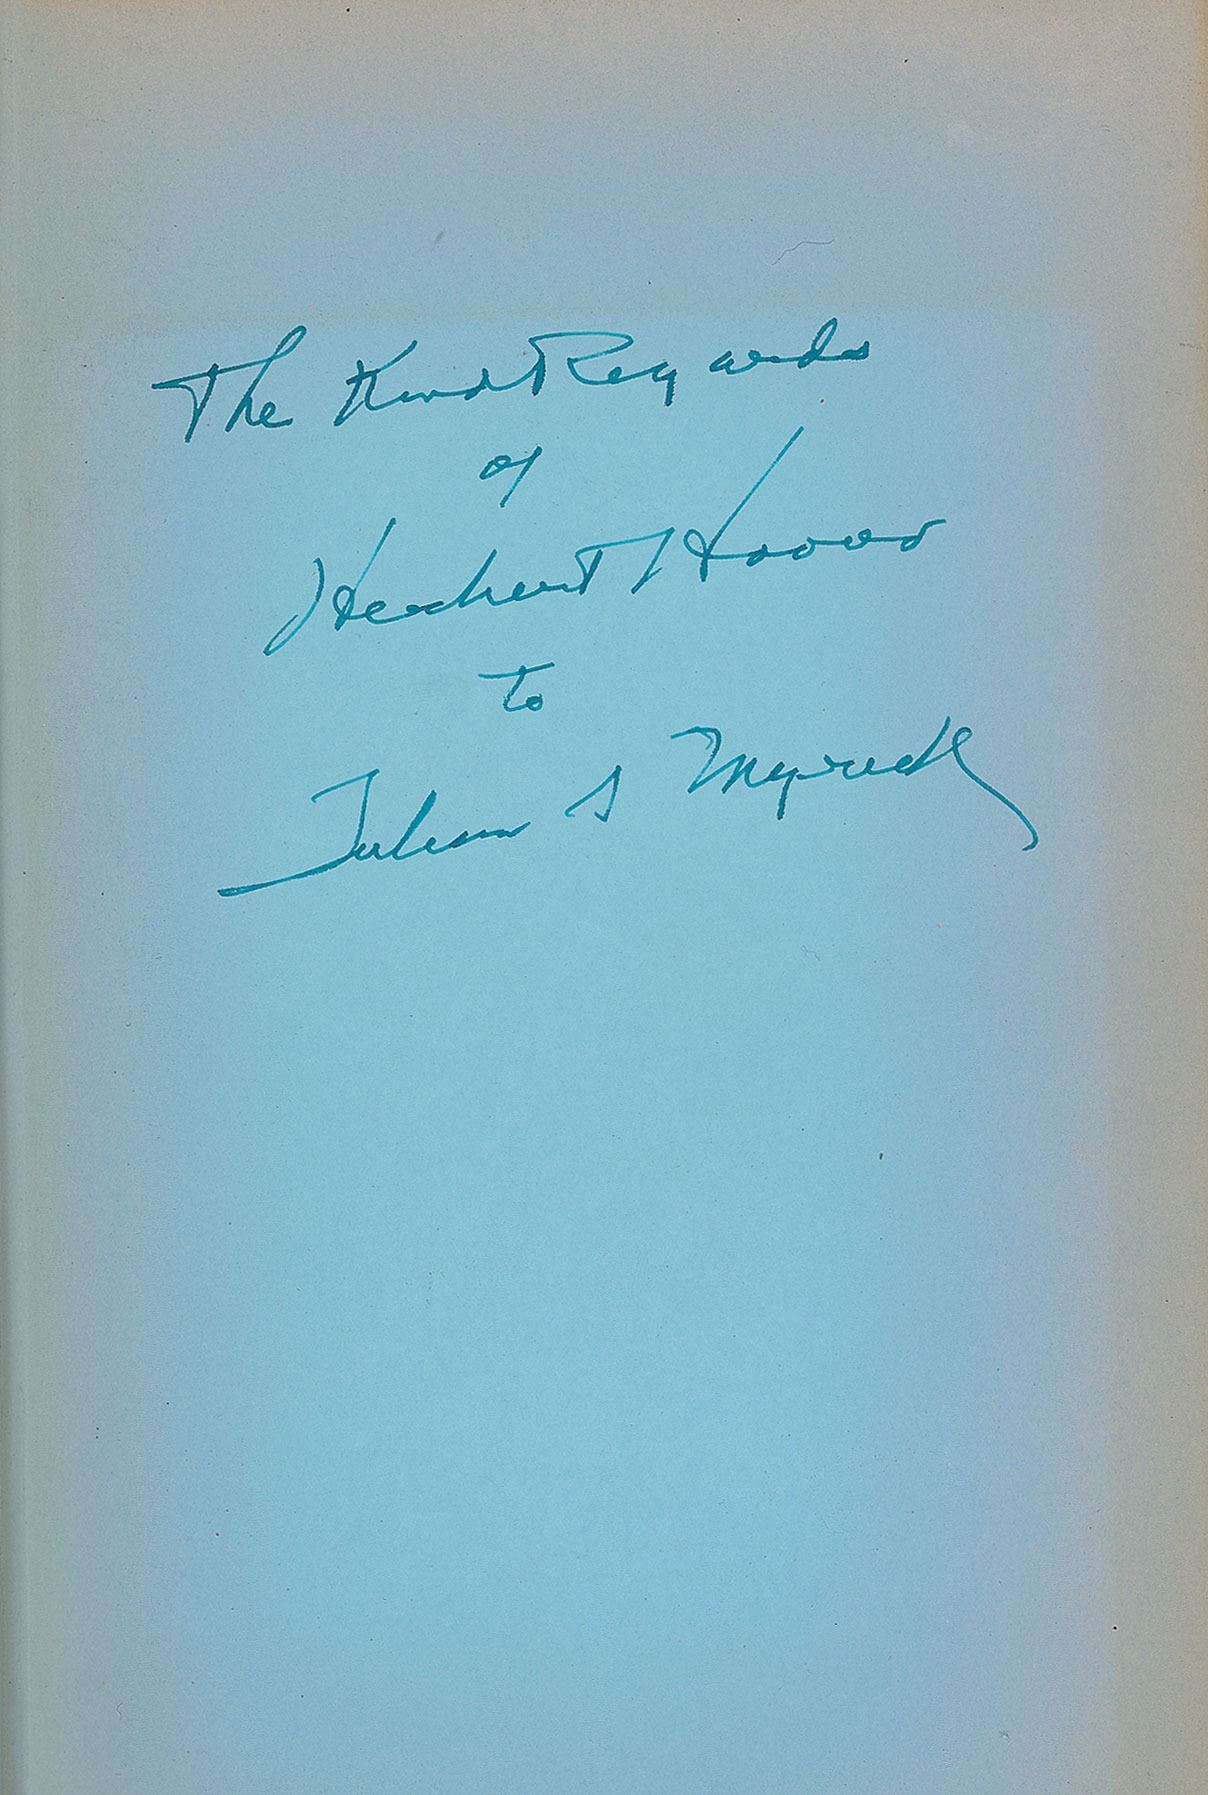 The Kind Regards
of
Herbert Hoover
to
Julian S Myrick